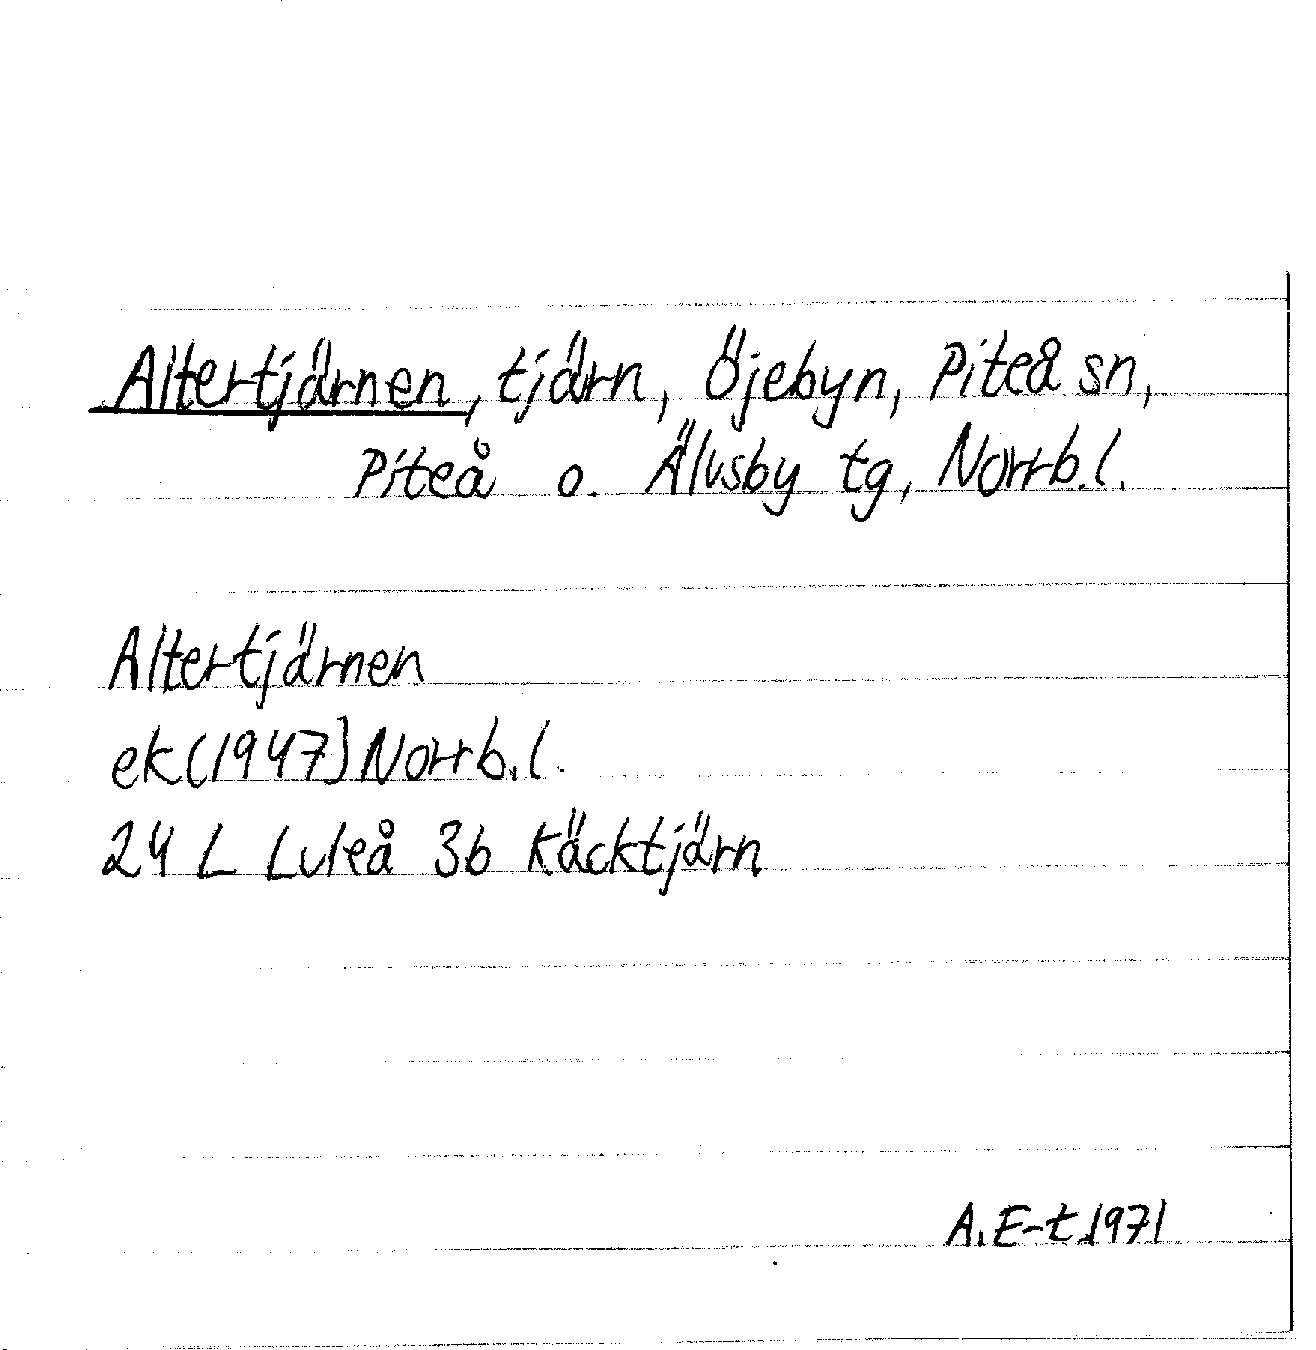 Altertjärnen, tjärn, Öjebyn, Piteå sn,
Piteå o. Älvsby tg, Norrb.l.
Altertjärnen
ek(1947) Norrb.l.
24 L Luleå 3b Käcktjärn
A.E-t 1971